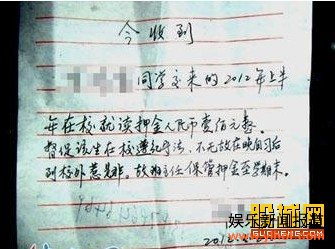 今收到
同学交来的2012年上半
年在校就读押金人民币壹佰元整。
督促该生在校遵纪守法，不无故在晚自习后
到校外惹是非，故班主任保管押金至学期末。
股城网
GUCHENG.COM
娱乐新闻报道
2012.2.